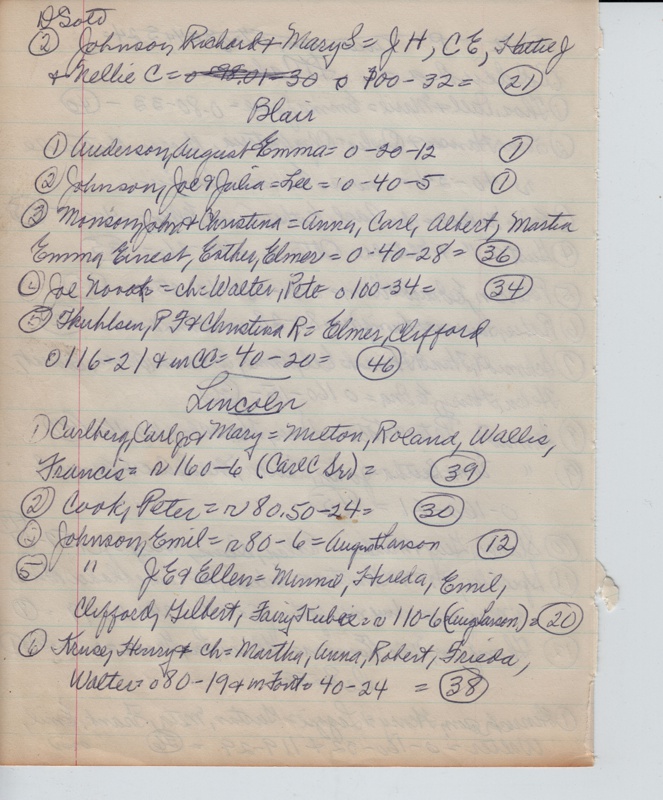 D Soto
② Johnson, Richard & Mary S = J H, C E, Hattie J
& Nellie C = 0 100-32 = (21)
Blair
① Anderson, August Emma = 0-20-12 (1)
② Johnson, Joe & Julia = Lee = 0-40-5 (1)
③ Monson, John & Christina = Anna, Carl, Albert, Martin
Emma Ernest, Esther, Elmer = 0-40-28 = (36)
④ Joe Novak = ch = Walter, Pete 0 100-34 = (34)
⑤ P F & Christina R = Elmer, Clifford
0 116-21 & in CC = 40-20 = (46)
Lincoln
1) Carlberg, Carl Jr & Mary = Milton, Roland, Wallis,
Francis = r 160-6 (Carl C Sr) = (39)
② Cook, Peter = r 80.50-24 = (30)
Johnson, Emil = r 80-6 = August Larson (12)
⑤ " J E & Ellen = Minnie, Hulda, Emil,
Clifford, Gilbert, Fairy = r 110-6 (Aug Larson) = (20)
⑥ Kruse, Henry & ch = Martha, Anna, Robert, Frieda,
Walter = 0 80-19 & in Font = 40-24 = (38)